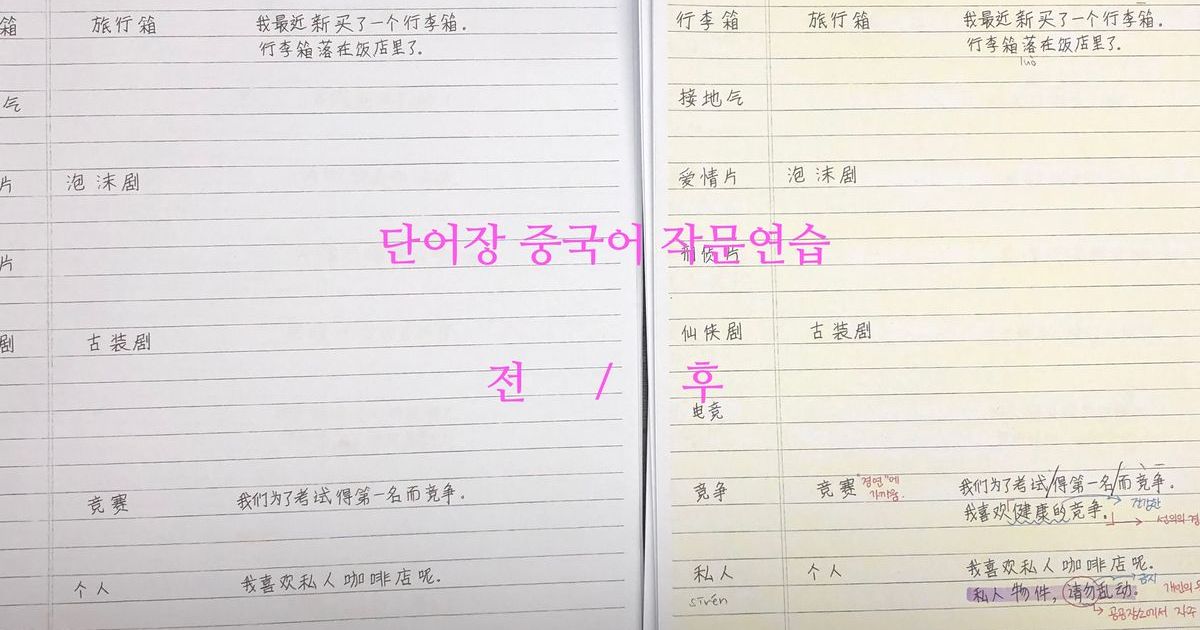 箱 旅行箱 我最近新买了一个行李箱.
行李箱落在饭店里了.
气
片 泡沫剧
片
剧 古装剧
竞赛 我们为了考试得第一名而竞争.
个人 我喜欢私人咖啡店呢.
단어장 중국어 작문연습
전 / 후
行李箱 旅行箱 我最近新买了一个行李箱.
行李箱落在饭店里了.
luò
接地气
爱情片 泡沫剧
刑侦片
仙侠剧 古装剧
电竞
竞争 竞赛 "경연"에 我们为了考试/得第一名/而竞争.
가까움. 我喜欢健康的竞争. 건강한
성의의 경
私人 个人 我喜欢私人咖啡店呢.
sīrén 私人物件, 请勿乱动. 금지
개인의
공공장소에서 자주